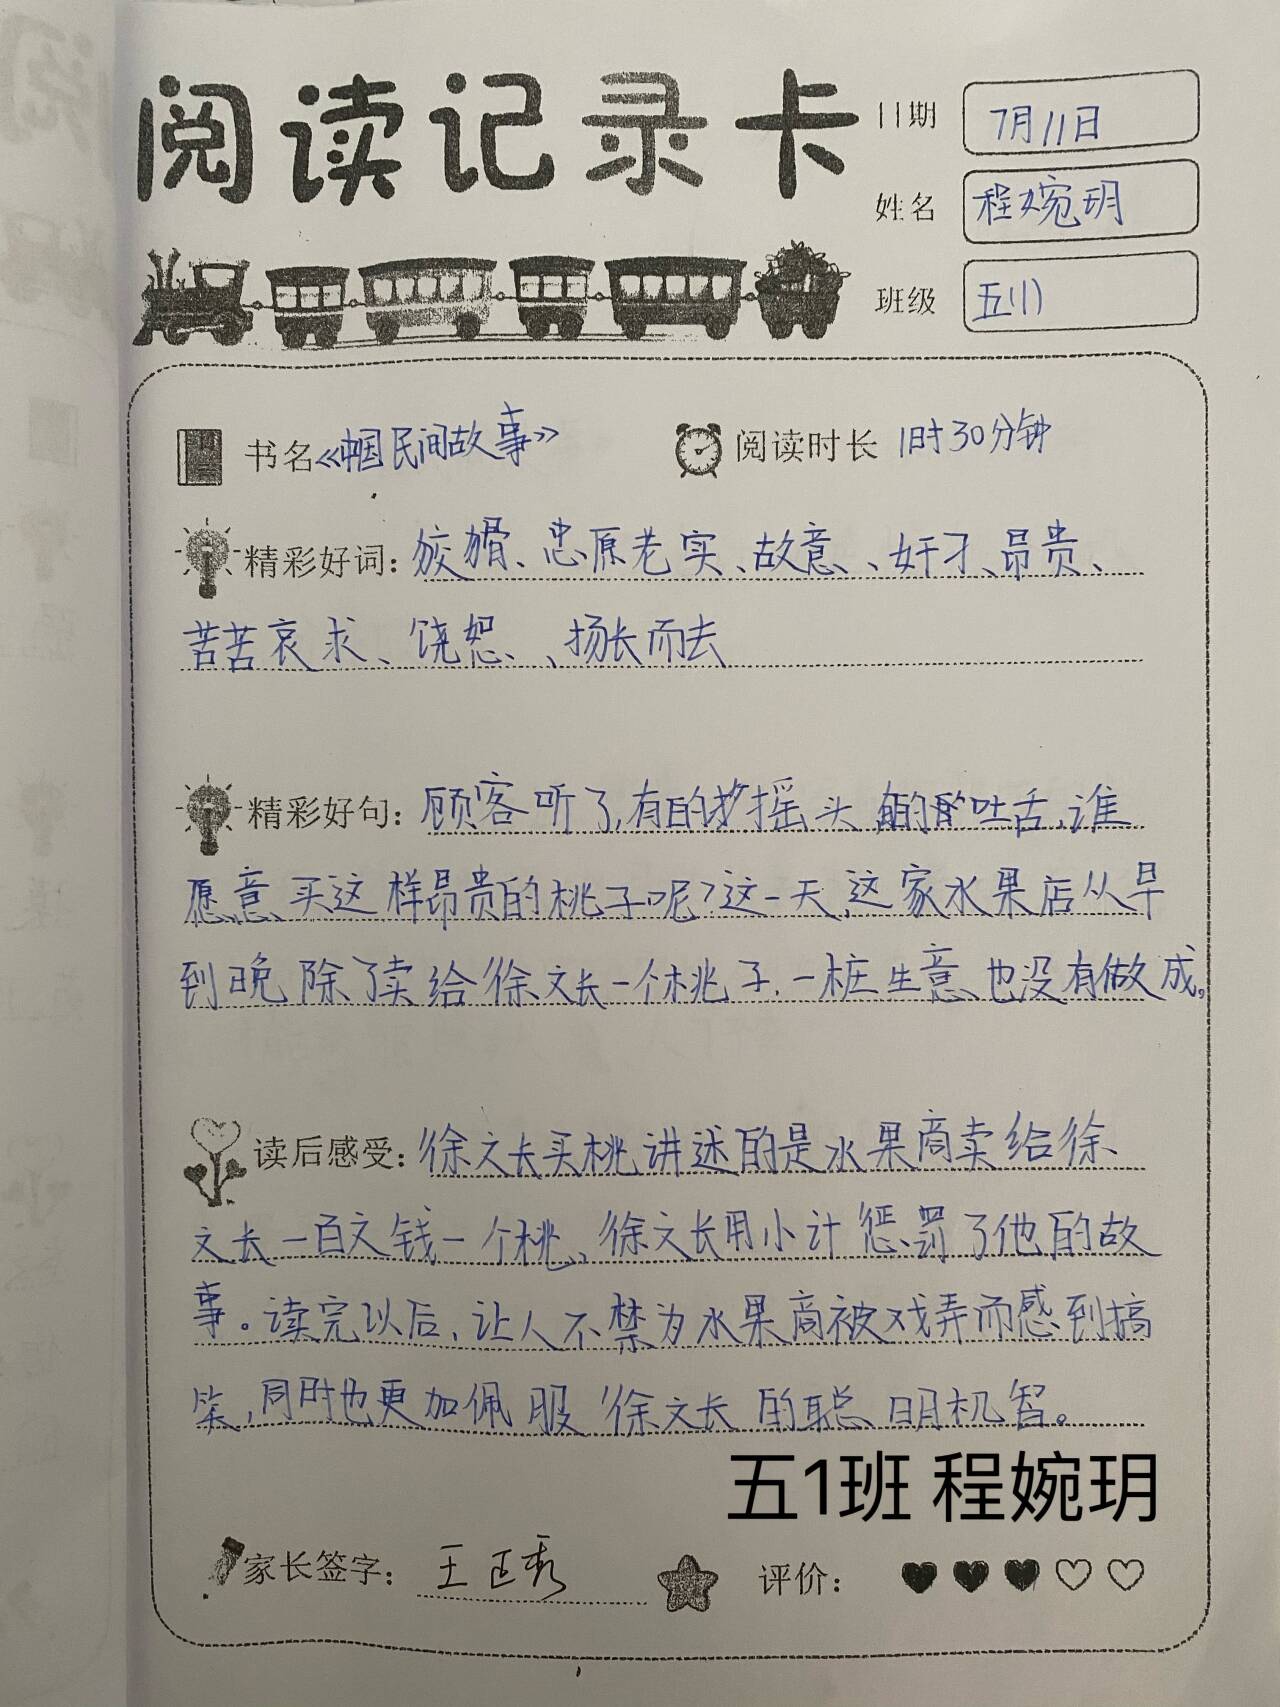 阅读记录卡
日期 7月11日
姓名 程婉玥
班级 五(1)
书名《中国民间故事》
阅读时长 1时30分钟
精彩好词：狡猾、忠厚老实、故意、奸刁、昂贵、
苦苦哀求、饶恕、扬长而去
精彩好句：顾客听了,有的摇头 有的吐舌,谁
愿意买这样昂贵的桃子呢?这一天,这家水果店从早
到晚除了卖给徐文长一个桃子,一桩生意也没有做成。
读后感受：徐文长买桃讲述的是水果商卖给徐
文长一百文钱一个桃,徐文长用小计惩罚了他的故
事。读完以后,让人不禁为水果商被戏弄而感到搞
笑,同时也更加佩服徐文长的聪明机智。
五1班 程婉玥
家长签字：王正秀
评价：